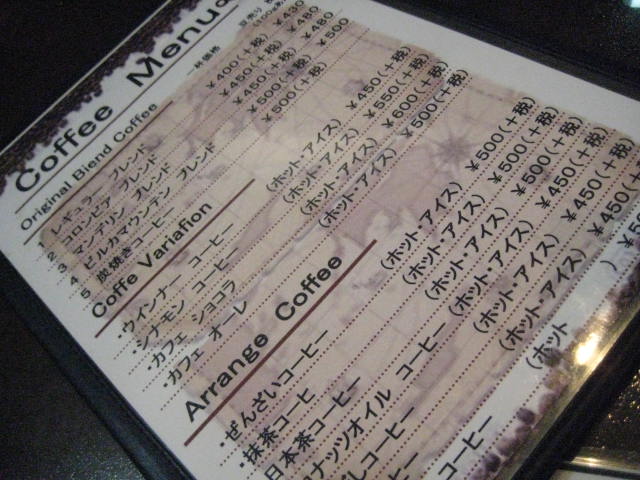 Coffee Menu
Original Blend Coffee 一杯価格
レギュラー ブレンド ¥400(+税)
2 コロンビア ブレンド ¥450(+税) ¥480
3 マンデリン ブレンド ¥450(+税) ¥500
4 ピルカマウンテン ブレンド ¥500(+税)
5 炭焼きコーヒー ¥500(+税)
Coffe Variation
・ウインナー コーヒー (ホット・アイス) ¥450(+税)
・シナモン コーヒー (ホット・アイス) ¥550(+税)
・カフェ ショコラ (ホット・アイス) ¥600(+税)
・カフェ オーレ (ホット・アイス) ¥500(+税)
Arrange Coffee
・ぜんざいコーヒー (ホット・アイス) ¥500(+税)
・抹茶コーヒ (ホット・アイス) ¥500(+税)
日本茶コーヒー (ホット・アイス) ¥500(+税)
コナッツオイル コーヒー (ホット・アイス) ¥450(+税)
コーヒー (ホット・アイス) ¥450(+税)
コーヒー (ホット )